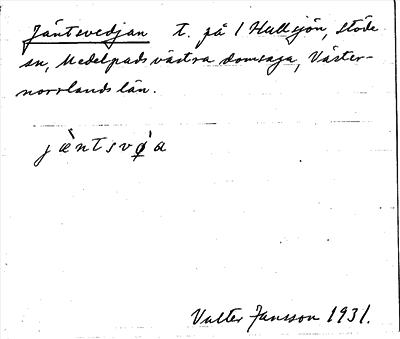 Jäntsvedjan t. på 1 Hullsjön, Stöde
sn, Medelpads västra domsaga, Väster-
norrlands län.
jæ̀ntsvø̀a
Valter Jansson 1931.